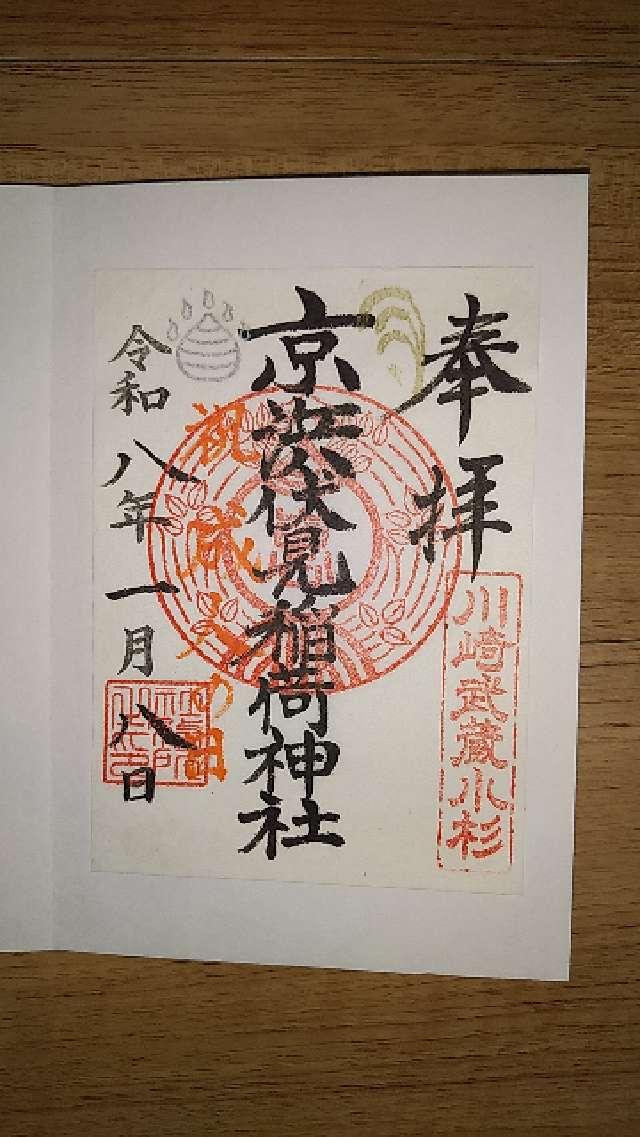 奉拝
川崎武蔵小杉
京浜伏見稲荷神社
祝成人の日
令和八年一月八日